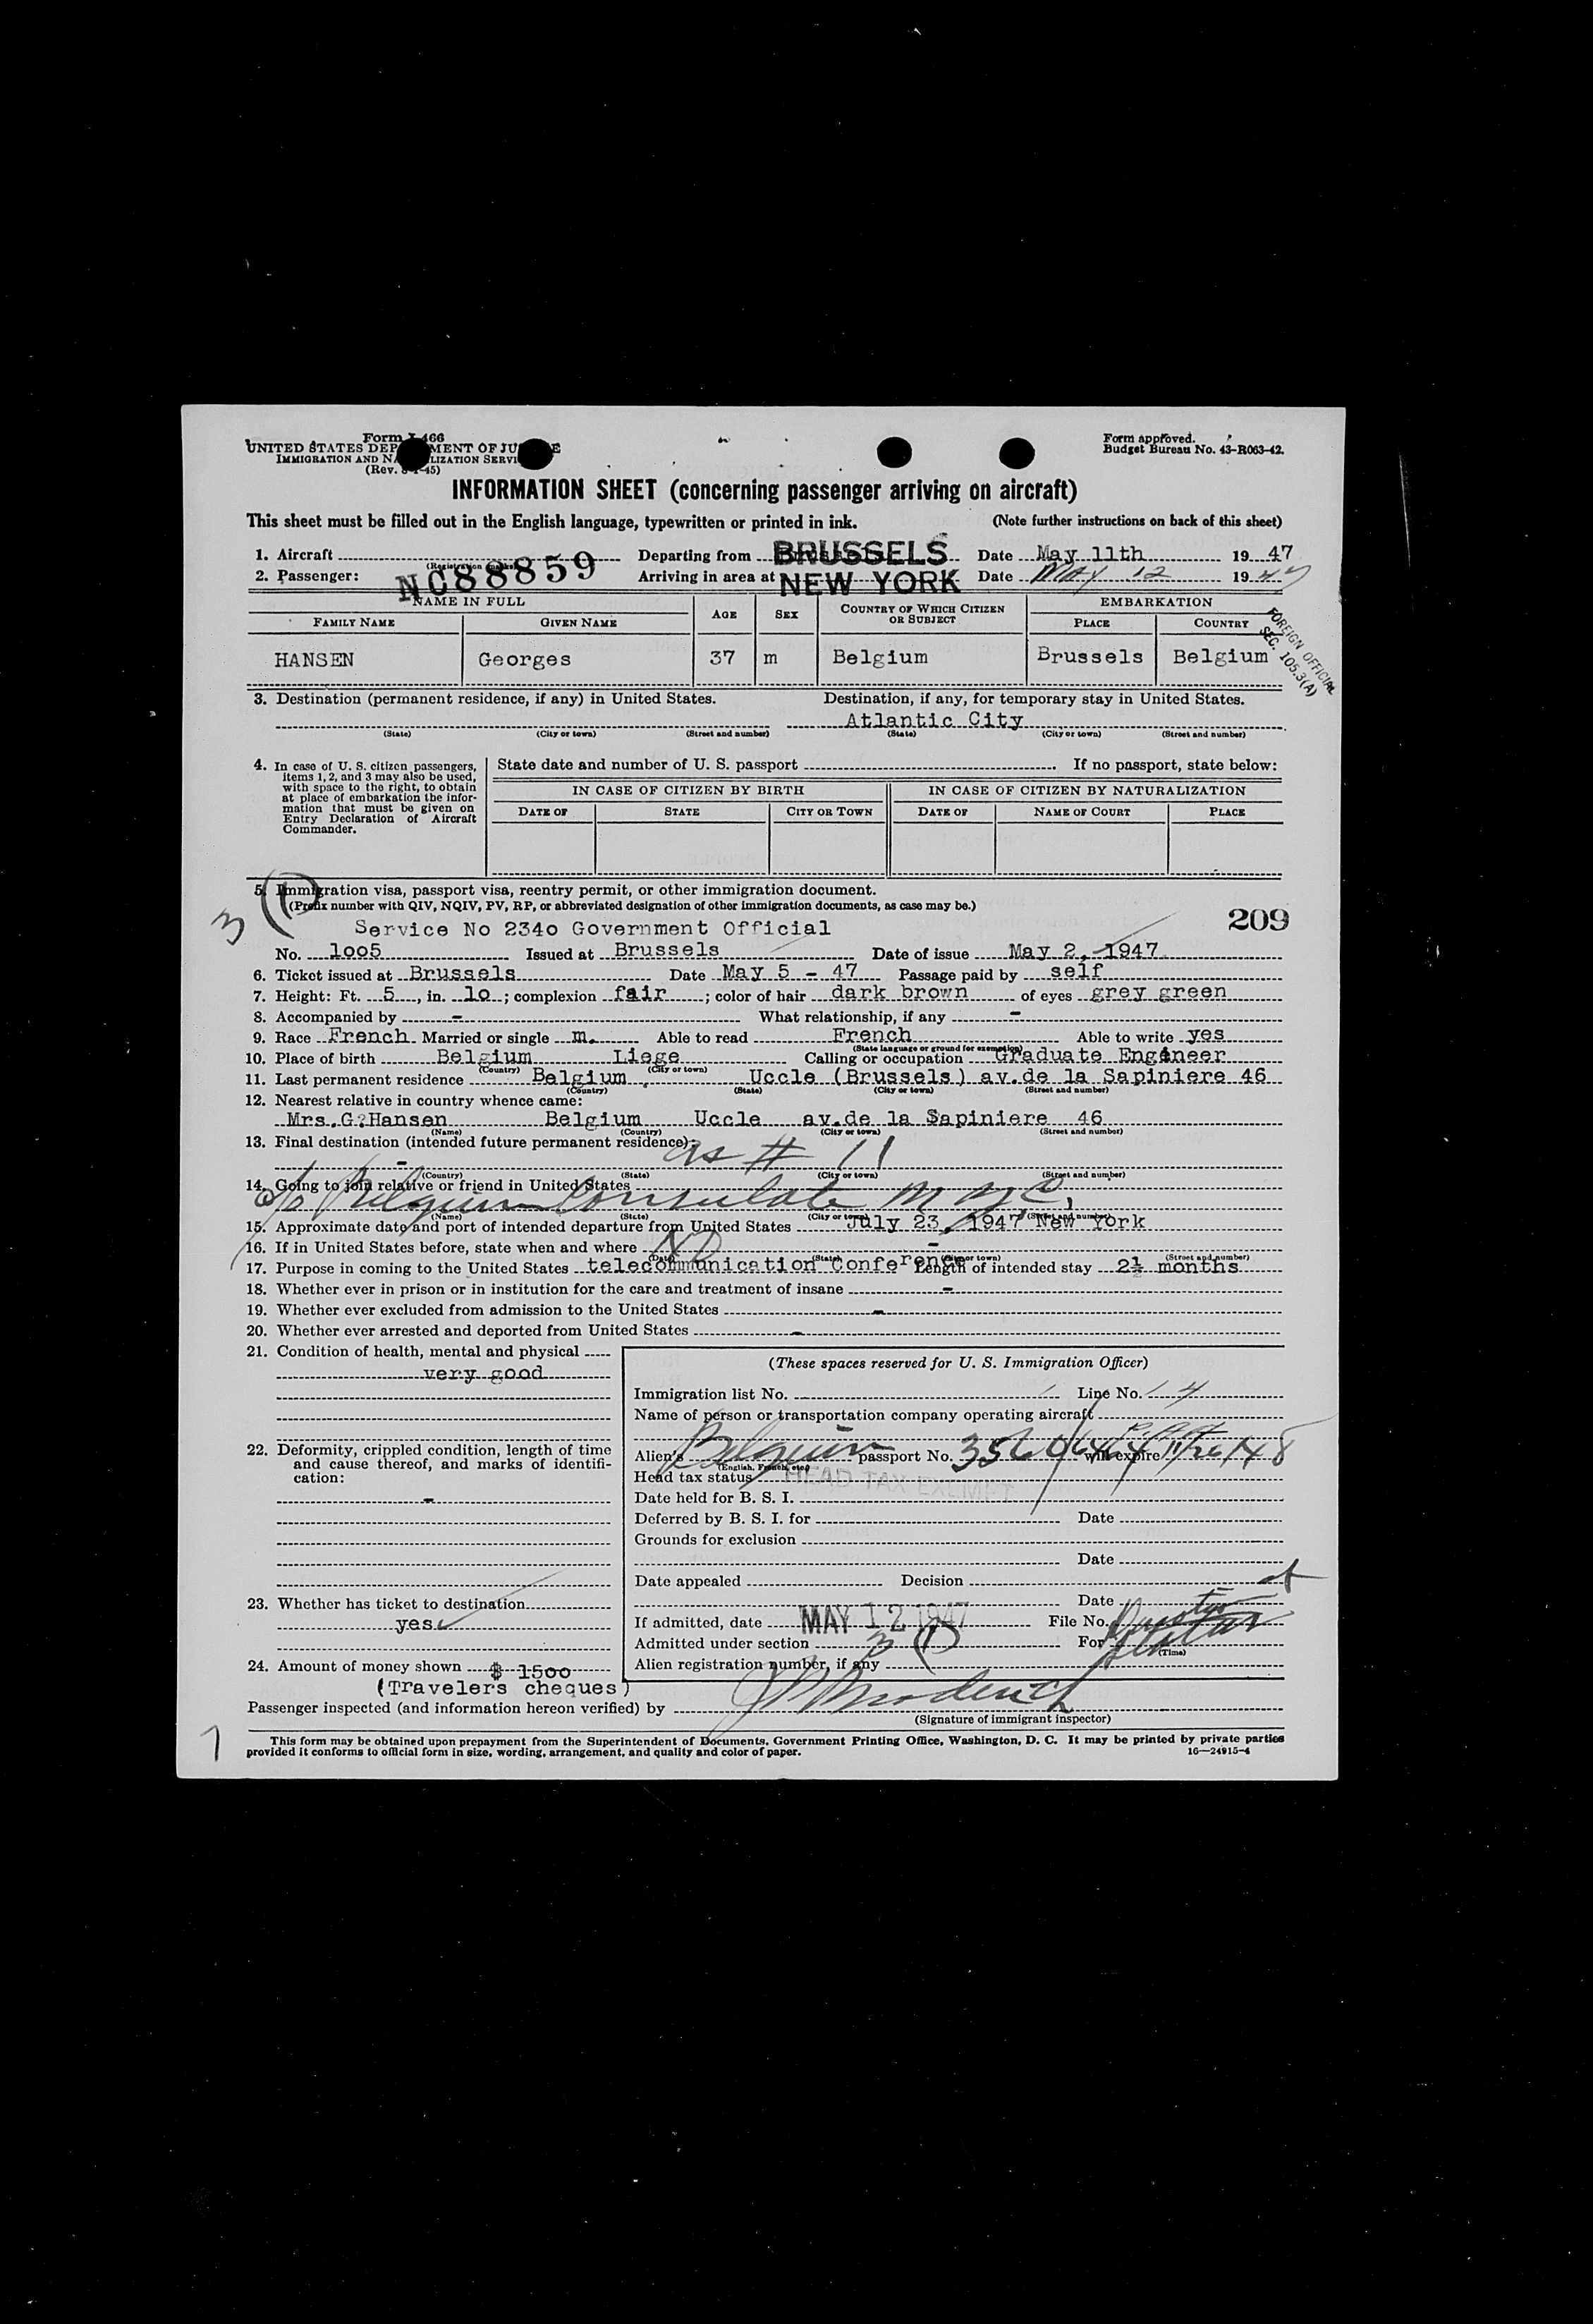 Form I-466
UNITED STATES DEPARTMENT OF JUSTICE
IMMIGRATION AND NATURALIZATION SERVICE
(Rev. 8-1-45)
Form approved.
Budget Bureau No. 43-R063-42.
INFORMATION SHEET (concerning passenger arriving on aircraft)
This sheet must be filled out in the English language, typewritten or printed in ink. (Note further instructions on back of this sheet)
1. Aircraft NC88859 Departing from BRUSSELS Date May 11th 1947
(Registration marks)
2. Passenger: Arriving in area at NEW YORK Date May 12 1947
NAME IN FULL AGE SEX COUNTRY OF WHICH CITIZEN OR SUBJECT EMBARKATION
FAMILY NAME GIVEN NAME PLACE COUNTRY
HANSEN Georges 37 m Belgium Brussels Belgium
FOREIGN OFFICIAL
SEC. 105.3(A)
3. Destination (permanent residence, if any) in United States. Destination, if any, for temporary stay in United States.
Atlantic City
(State) (City or town) (Street and number) (State) (City or town) (Street and number)
4. In case of U. S. citizen passengers, items 1, 2, and 3 may also be used, with space to the right, to obtain at place of embarkation the information that must be given on Entry Declaration of Aircraft Commander.
State date and number of U. S. passport If no passport, state below:
IN CASE OF CITIZEN BY BIRTH IN CASE OF CITIZEN BY NATURALIZATION
DATE OF STATE CITY OR TOWN DATE OF NAME OF COURT PLACE
3 (1)
5. Immigration visa, passport visa, reentry permit, or other immigration document.
(Prefix number with QIV, NQIV, PV, RP, or abbreviated designation of other immigration documents, as case may be.)
209
Service No 234o Government Official
No. 1oo5 Issued at Brussels Date of issue May 2, 1947
6. Ticket issued at Brussels Date May 5 - 47 Passage paid by self
7. Height: Ft. 5, in. 1o; complexion fair; color of hair dark brown of eyes grey green
8. Accompanied by - What relationship, if any -
9. Race French Married or single m. Able to read French Able to write yes
(State language or ground for exemption)
10. Place of birth Belgium Liege Calling or occupation Graduate Engineer
(Country) (City or town)
11. Last permanent residence Belgium Uccle (Brussels) av.de la Sapiniere 46
(Country) (State) (City or town) (Street and number)
12. Nearest relative in country whence came:
Mrs.G?Hansen Belgium Uccle av.de la Sapiniere 46
(Name) (Country) (City or town) (Street and number)
13. Final destination (intended future permanent residence): as # 11
-
(Country) (State) (City or town) (Street and number)
14. Going to join relative or friend in United States
c/o Belgium Consulate N Y C,
(Name) (State) (City or town) (Street and number)
15. Approximate date and port of intended departure from United States July 23, 1947 New York
16. If in United States before, state when and where NO -
(Date) (State) (City or town) (Street and number)
17. Purpose in coming to the United States telecommunication Conference Length of intended stay 2½ months
18. Whether ever in prison or in institution for the care and treatment of insane -
19. Whether ever excluded from admission to the United States -
20. Whether ever arrested and deported from United States -
21. Condition of health, mental and physical
very good
22. Deformity, crippled condition, length of time and cause thereof, and marks of identification:
-
23. Whether has ticket to destination
yes
24. Amount of money shown $ 15oo
(Travelers cheques)
(These spaces reserved for U. S. Immigration Officer)
Immigration list No. Line No. 4
Name of person or transportation company operating aircraft
Alien's Belgium passport No. will expire 11/26/48
(English, French, etc.)
Head tax status HEAD TAX EXEMPT
Date held for B. S. I.
Deferred by B. S. I. for Date
Grounds for exclusion
Date
Date appealed Decision
Date
If admitted, date MAY 12 1947 File No.
Admitted under section 3 (1) For
(Time)
Alien registration number, if any
Passenger inspected (and information hereon verified) by
(Signature of immigrant inspector)
7
This form may be obtained upon prepayment from the Superintendent of Documents, Government Printing Office, Washington, D. C. It may be printed by private parties
provided it conforms to official form in size, wording, arrangement, and quality and color of paper. 16—24915-4